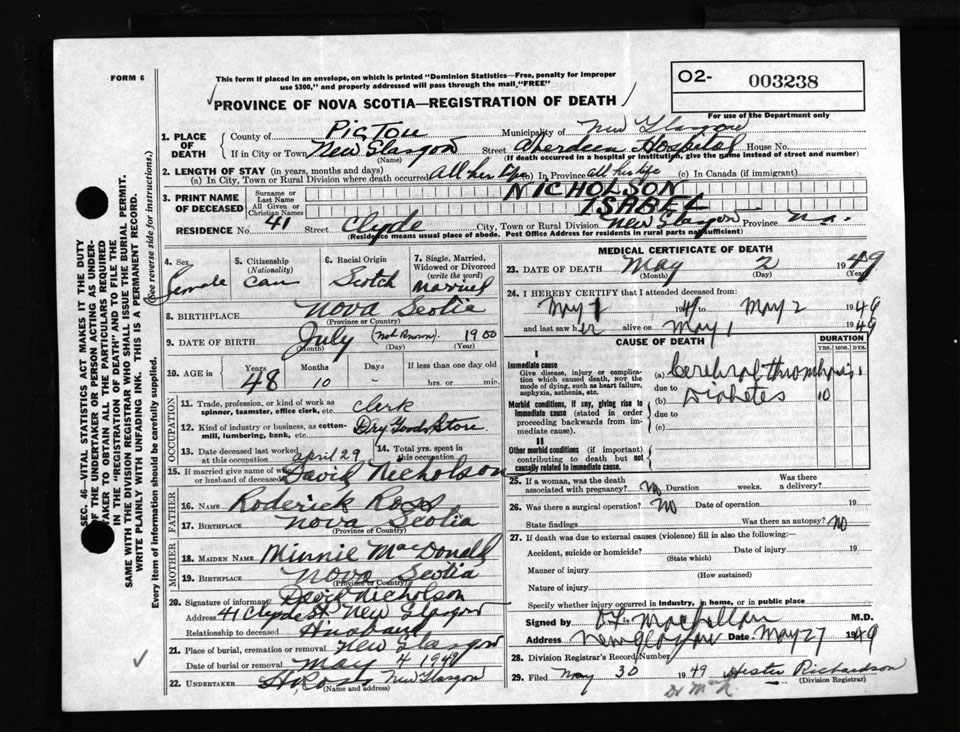 FORM 6
This form if placed in an envelope, on which is printed "Dominion Statistics—Free, penalty for improper
use $300," and properly addressed will pass through the mail "FREE"
O2- 003238
PROVINCE OF NOVA SCOTIA—REGISTRATION OF DEATH
For use of the Department only
1. PLACE OF DEATH
County of Pictou Municipality of New Glasgow
If in City or Town New Glasgow (Name) Street Aberdeen Hospital House No.
(If death occurred in a hospital or institution, give the name instead of street and number)
2. LENGTH OF STAY (in years, months and days)
(a) In City, Town or Rural Division where death occurred All her life (b) In Province all her life (c) In Canada (if immigrant)
3. PRINT NAME OF DECEASED
Surname or Last Name NICHOLSON
All Given or Christian Names ISABEL
RESIDENCE No. 41 Street Clyde City, Town or Rural Division New Glasgow Province N.S.
(Residence means usual place of abode. Post Office Address for residents in rural parts not sufficient)
4. Sex Female
5. Citizenship (Nationality) Can
6. Racial Origin Scotch
7. Single, Married, Widowed or Divorced (write the word) Married
8. BIRTHPLACE Nova Scotia
(Province or Country)
9. DATE OF BIRTH July (Not Known) 1900
(Month) (Day) (Year)
10. AGE in Years 48 Months 10 Days - If less than one day old
hrs. or min.
OCCUPATION
11. Trade, profession, or kind of work as spinner, teamster, office clerk, etc. Clerk
12. Kind of industry or business, as cotton-mill, lumbering, bank, etc. Dry Goods Store
13. Date deceased last worked at this occupation April 29 14. Total yrs. spent in this occupation
15. If married give name of wife or husband of deceased David Nicholson
FATHER
16. NAME Roderick Ross
17. BIRTHPLACE Nova Scotia
(Province or Country)
MOTHER
18. MAIDEN NAME Minnie MacDonell
19. BIRTHPLACE Nova Scotia
(Province or Country)
20. Signature of informant David Nicholson
Address 41 Clyde St New Glasgow
Relationship to deceased Husband
21. Place of burial, cremation or removal New Glasgow
Date of burial or removal May 4 1949
22. UNDERTAKER New Glasgow
(Name and address)
MEDICAL CERTIFICATE OF DEATH
23. DATE OF DEATH May 2 1949
(Month) (Day) (Year)
24. I HEREBY CERTIFY that I attended deceased from:
May 1 1949 to May 2 1949
and last saw her alive on May 1 1949
CAUSE OF DEATH DURATION
YRS. MOS. DYS.
I
Immediate cause
Give disease, injury or complication which caused death, NOT the mode of dying, such as heart failure, asphyxia, asthenia, etc.
(a) Cerebral thrombosis 1
due to
(b) Diabetes 10
due to
(c)
Morbid conditions, if any, giving rise to immediate cause (stated in order proceeding backwards from immediate cause).
II
Other morbid conditions (if important) contributing to death but not causally related to immediate cause.
25. If a woman, was the death associated with pregnancy? No Duration weeks. Was there a delivery?
26. Was there a surgical operation? NO Date of operation 19
State findings Was there an autopsy? NO
27. If death was due to external causes (violence) fill in also the following:—
Accident, suicide or homicide? Date of injury 19
(State which)
Manner of injury
(How sustained)
Nature of injury
Specify whether injury occurred in industry, in home, or in public place
Signed by M.D.
Address New Glasgow Date May 27 1949
28. Division Registrar's Record Number
29. Filed May 30 1949 Hester Richardson
(Division Registrar)
SEC. 46—VITAL STATISTICS ACT MAKES IT THE DUTY
OF THE UNDERTAKER OR PERSON ACTING AS UNDER-
TAKER TO OBTAIN ALL THE PARTICULARS REQUIRED
IN THE "REGISTRATION OF DEATH" AND TO FILE THE
SAME WITH THE DIVISION REGISTRAR WHO SHALL ISSUE THE BURIAL PERMIT.
WRITE PLAINLY WITH UNFADING INK. THIS IS A PERMANENT RECORD.
Every item of information should be carefully supplied. (See reverse side for instructions.)